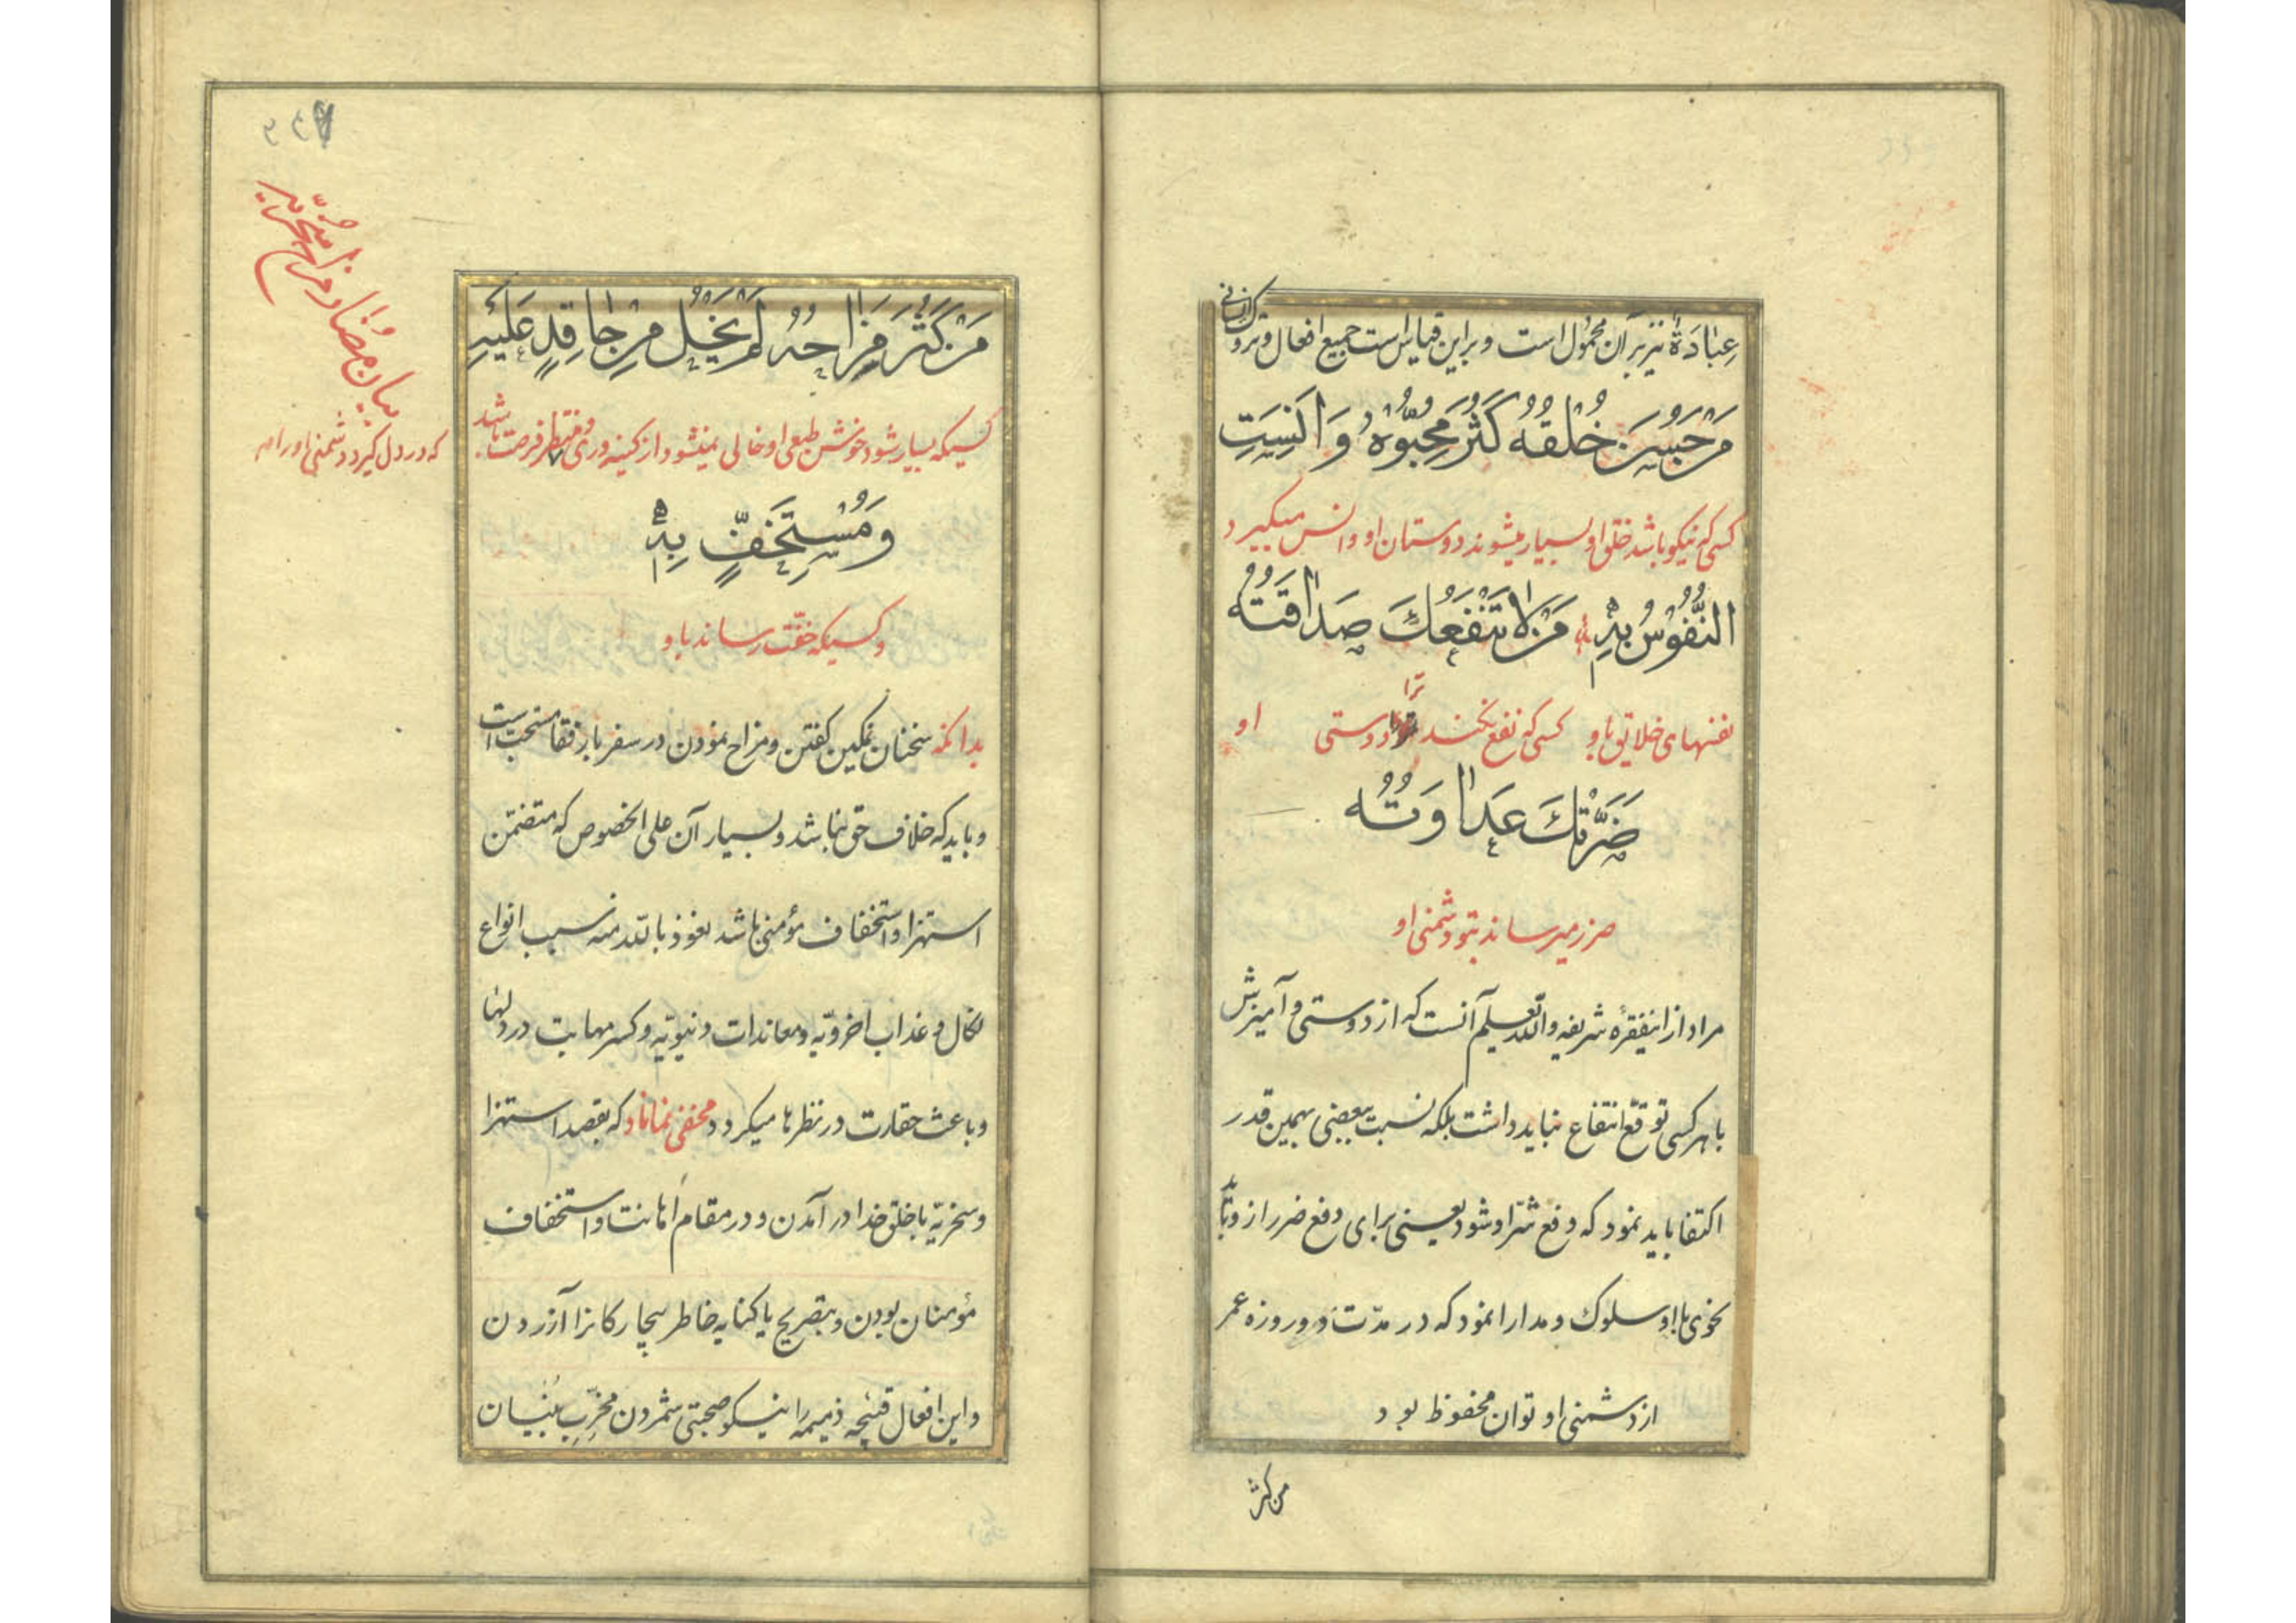 عِبٰادَةْ نیز بر آن محمول است و بر این قیاس است جمیع افعال و تروک انسانی
مَنْ حَسُنَ خُلْقُهُ كَثُرَ مُحِبُّوْهُ وَ اٰنَسَتِ
کسی که نیکو باشد خلق او بسیار میشوند دوستان او و انس میگیرد
النُّفُوْسُ بِهِ مَنْ لاٰ تَنْفَعُكَ صَدٰاقَتُهُ
نفسهای خلایق باو کسی که نفع نکند ترا دوستی او
ضَرَّتْكَ عَدٰاوَتُهُ
ضرر میرساند بتو دشمنی او
مراد از اینفقرهٔ شریفه واللّه یعلم آنست که از دوستی و آمیزش
با هر کسی توقّع انتفاع نباید داشت بلکه نسبت ببعضی بهمین قدر
اکتفا باید نمود که دفع شرّ او شود یعنی برای دفع ضرر از وی باید
بنحوی با او سلوک و مدارا نمود که در مدّت دو روزه عمر
از دشمنی او توان محفوظ بود
من کثر
مَنْ كَثُرَ مِزٰاحُهُ لَمْ يَخْلُ مِنْ حٰاقِدٍ عَلَيْهِ
کسیکه بسیار شود خوش طبعی او خالی نمیشود از کینه وری منتظر فرصت باشد
که در دل گیرد دشمنی او را
بیان مضار مزاح
وَ مُسْتَخِفٍّ بِهِ
و کسیکه خفّت رساند باو
بدانکه سخنان نمکین گفتن و مزاح نمودن در سفر با رفقا مستحب است
و باید که خلاف حق نباشد و بسیار آن علی الخصوص که متضمّن
استهزا و استخفاف مؤمنی باشد نعوذ باللّه منه سبب انواع
نکال و عذاب اخرویّه و معاندات دنیویّه و کسر مهابت در دلها
و باعث حقارت در نظرها میگردد و مخفی نماناد که بقصد استهزا
و سخریّه با خلق خدا در آمدن و در مقام اهانت و استخفاف
مؤمنان بودن و بتصریح یا کنایه خاطر بیچارگانرا آزردن
و این افعال قبیحه ذمیمه را نیکو صحبتی شمردن مخرّب بنیان